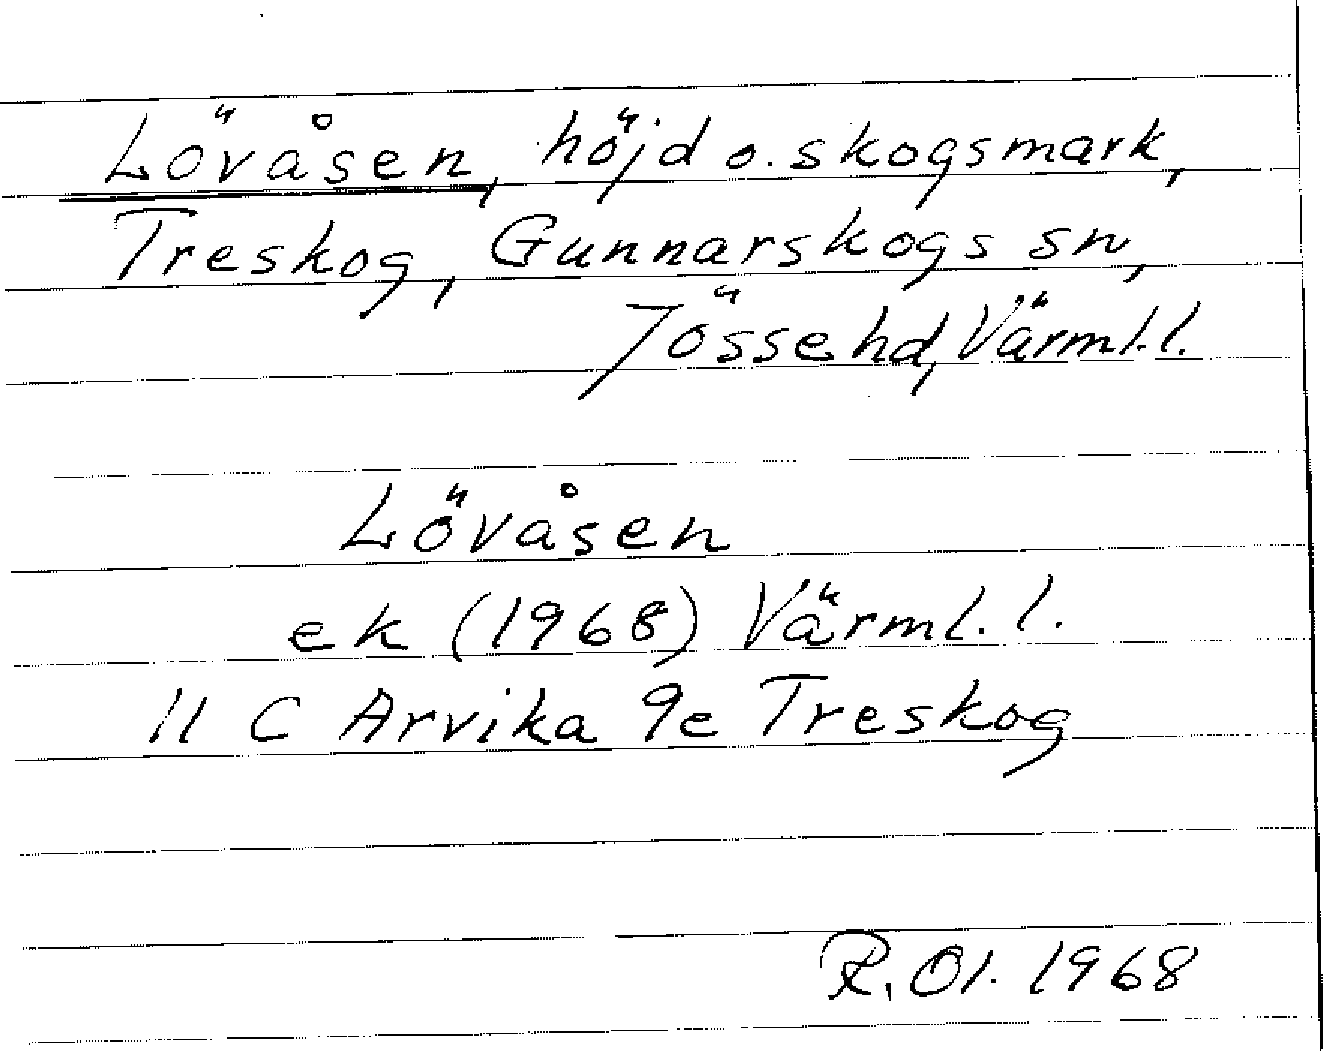 Lövåsen, höjd o. skogsmark,
Treskog, Gunnarskogs sn,
Jösse hd, Värml. l.
Lövåsen
ek (1968) Värml. l.
11 C Arvika 9e Treskog
R. Ol. 1968